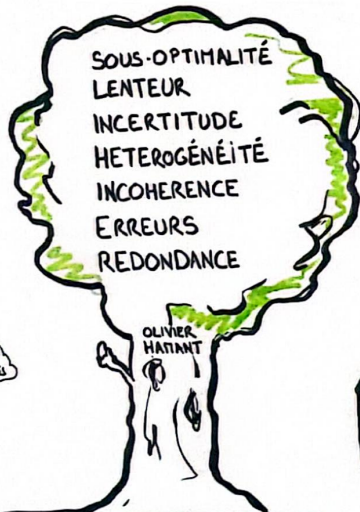 SOUS-OPTIMALITÉ
LENTEUR
INCERTITUDE
HETEROGÉNÉITÉ
INCOHERENCE
ERREURS
REDONDANCE
OLIVIER
HAMANT